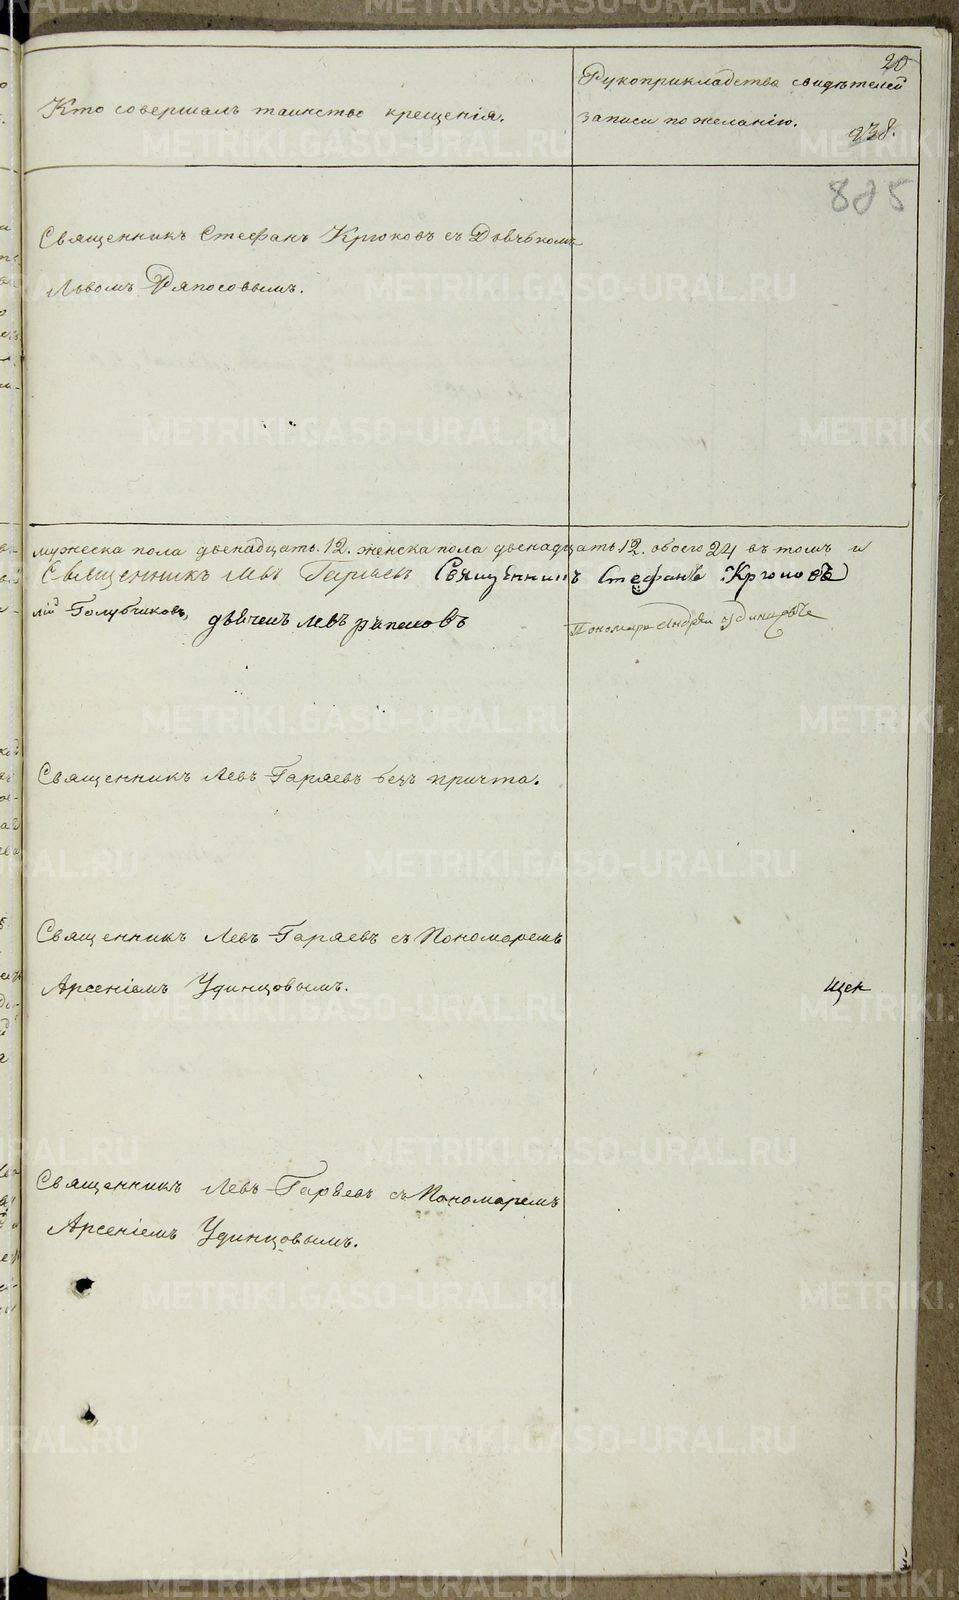 20
Кто совершалъ таинство крещенія.
Рукоприкладство свидѣтелей
записи по желанію.
238.
825
Священникъ Стефанъ Крюковъ съ Дьячькомъ
Львомъ Ряпосовымъ.
мужеска пола двенадцать. 12. женска пола двенадцать 12. обоего 24 въ томъ и
Священникъ Левъ Гаряевъ Священникъ Стефанъ Крюковъ
Голубчиковъ, дьячекъ левъ
Пономарь Удинцовъ
Священникъ Левъ Гаряевъ безъ причта.
Священникъ Левъ Гаряевъ съ Пономаремъ
Арсеніемъ Удинцовымъ.
щек
Священникъ Левъ Гаряевъ съ Пономаремъ
Арсеніемъ Удинцовымъ.
METRIKI.GASO-URAL.RU